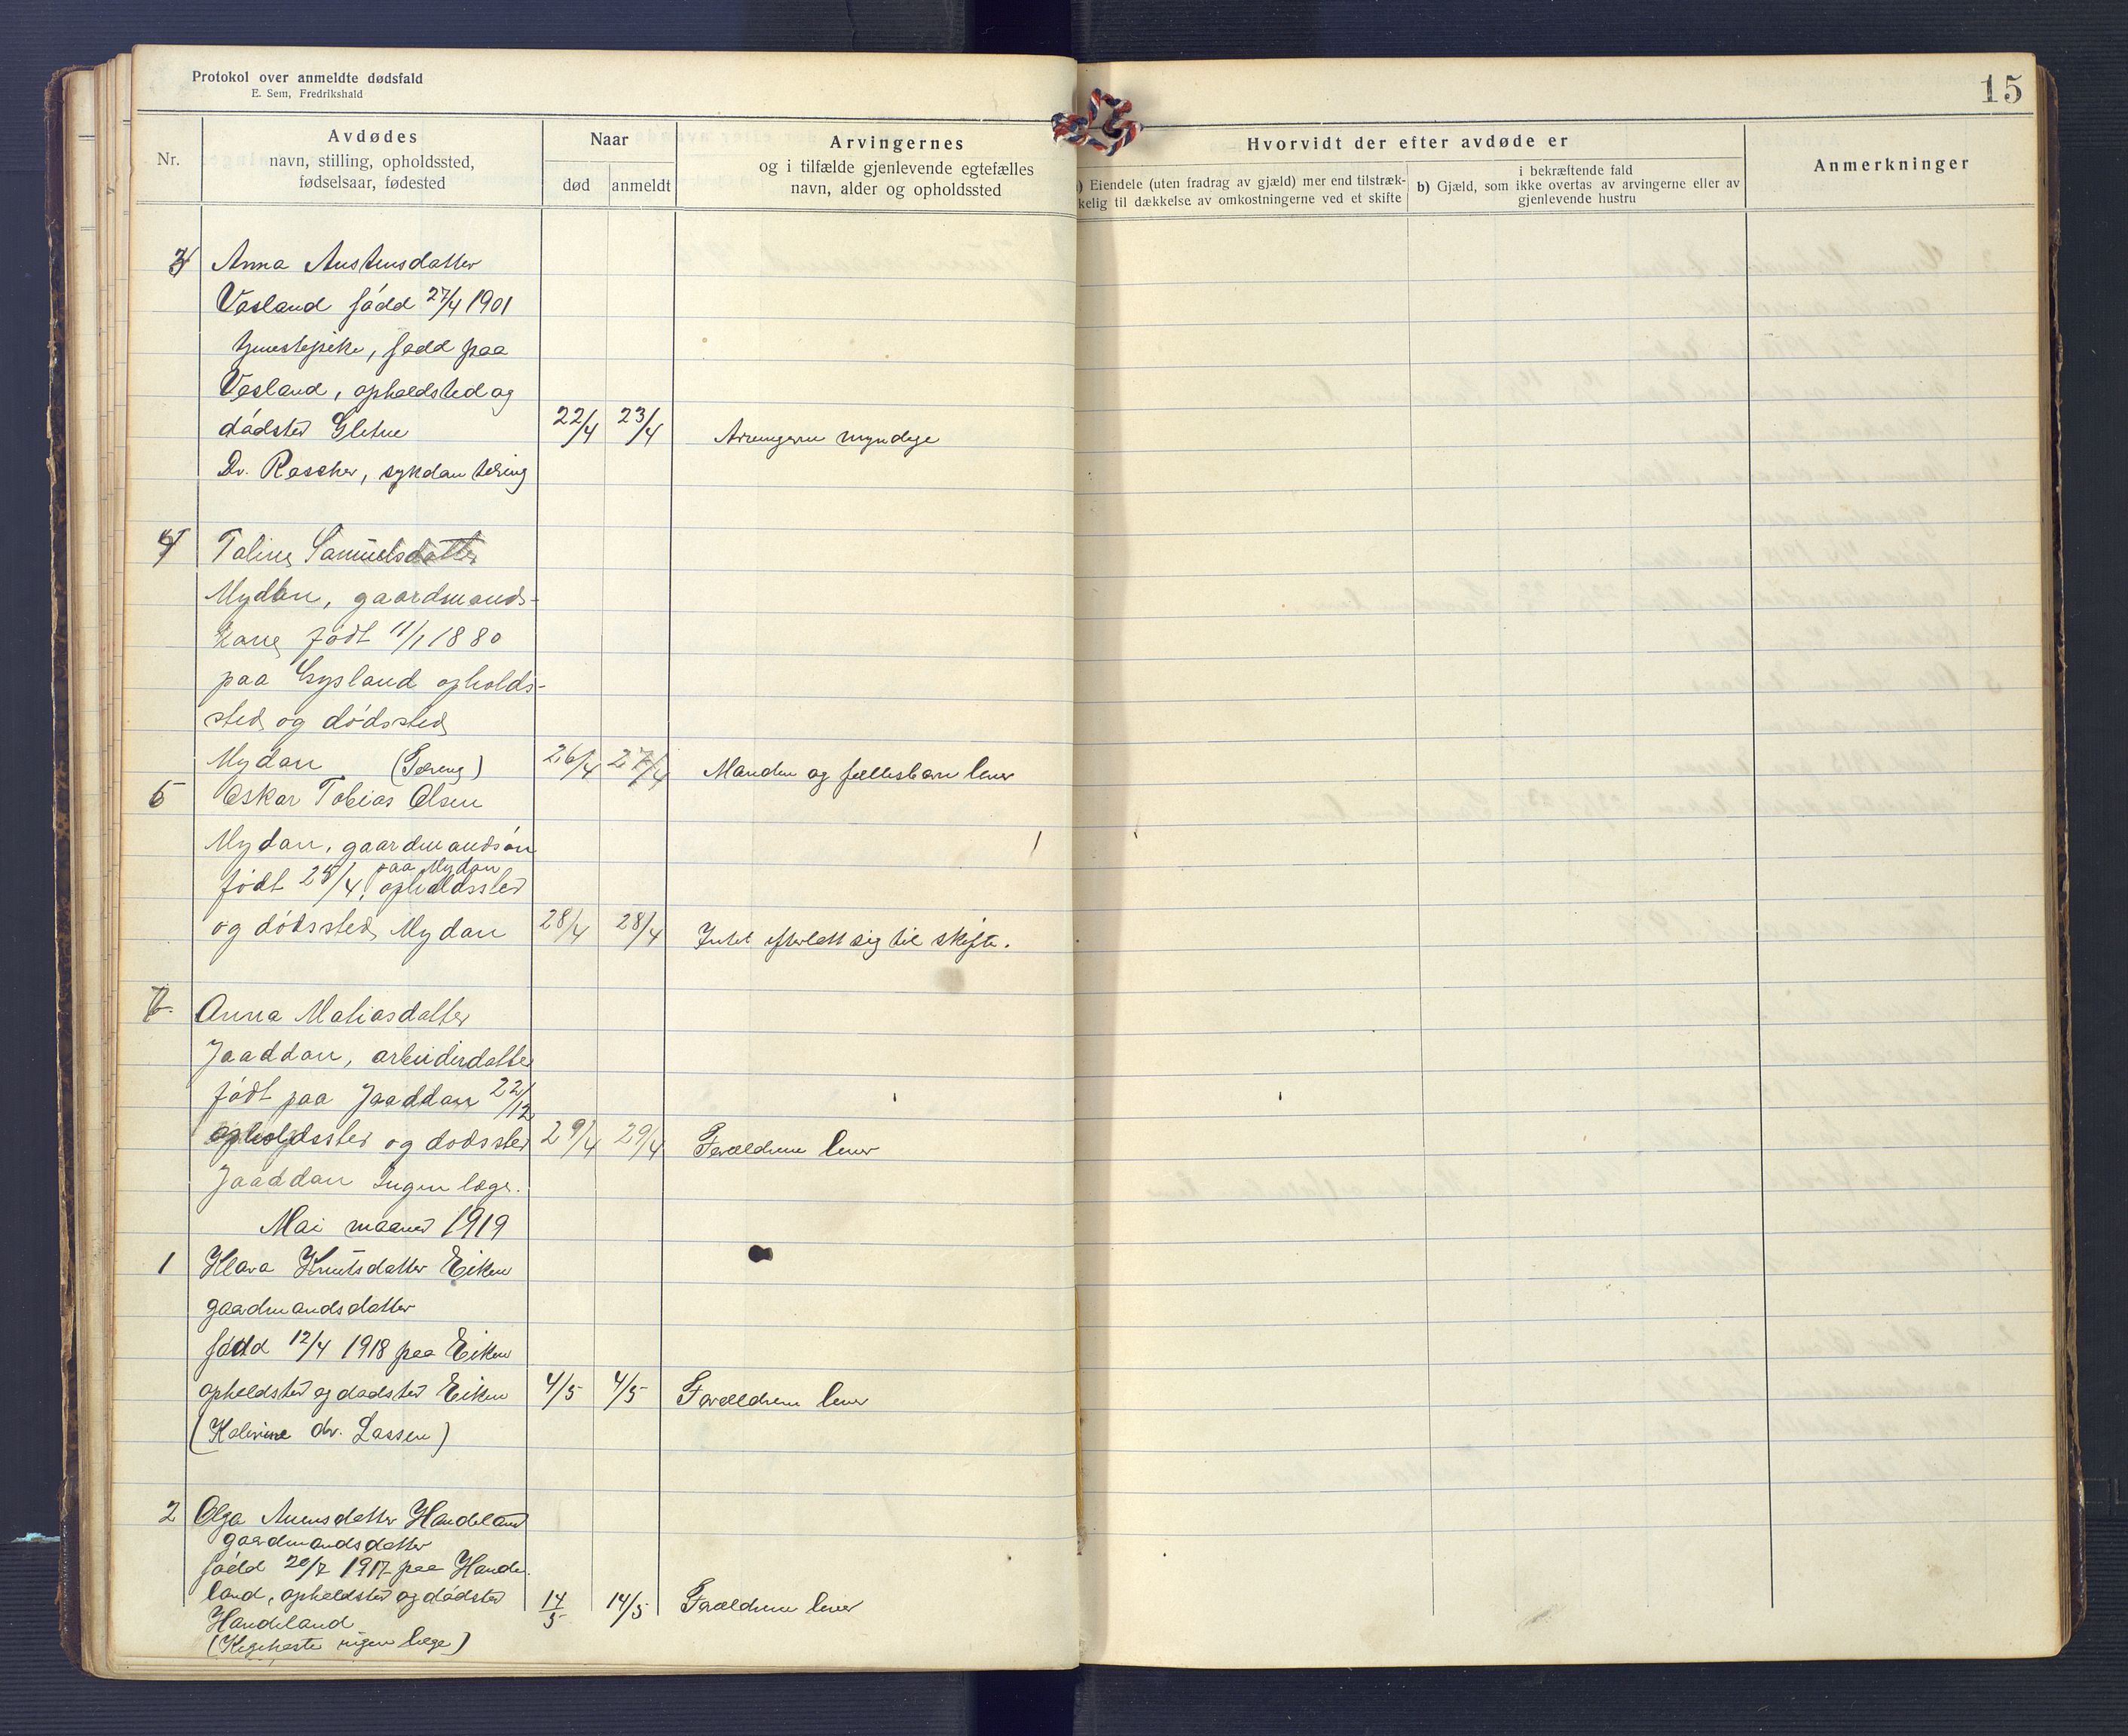 Protokol over anmeldte dødsfald
E. Sem, Fredrikshald
15
Nr.
Avdødes
navn, stilling, opholdssted,
fødselsaar, fødested
Naar
død
anmeldt
Arvingernes
og i tilfælde gjenlevende egtefælles
navn, alder og opholdssted
Hvorvidt der efter avdøde er
) Eiendele (uten fradrag av gjæld) mer end tilstræk-
kelig til dækkelse av omkostningerne ved et skifte
i bekræftende fald
b) Gjæld, som ikke overtas av arvingerne eller av
gjenlevende hustru
Anmerkninger
3 Anna Austensdatter
Vasland född 27/4 1901
tjenestepike, född paa
Vasland, opholdsted og
dödsted 22/4 23/4 Arvingerne myndige
Dr. Rascher, sykdom tæring
4 Taline Samuelsdatter
Mydlan, gaardmands-
kone født 11/1 1880
paa Gysland opholds-
sted og dødssted
Mydlan (Tæring) 26/4 27/4 Manden og fællesbarn lever
5 Oskar Tobias Olsen
Mydlan, gaardmandsøn
paa Mydlan
født 25/4, opholdssted
og dødssted Mydlan 28/4 28/4 Intet efterlatt sig til skifte.
6. Anna Matiasdatter
Jaaddan, arbeiderdatter
født paa Jaaddan 22/12
opholdssted og dødssted 29/4 29/4 Forældrene lever
Jaaddan Ingen læge.
Mai maaned 1919
1 Klara Knutsdatter Eiken
gaardmandsdatter
född 12/4 1918 paa Eiken
opholdsted og dødsted Eiken 4/5 4/5 Forældrene lever
(Kolerine dr. Lassen)
2 Olga Anensdatter Handeland
gaardmandsdatter
född 20/7 1917 paa Hande
land, opholdsted og dödsted 14/5 14/5 Forældrene lever
Handeland
(Kighoste ingen læge)